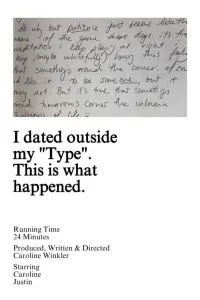 oh uh, but patience just seems like the
name of the game these days. it's the
meditation i keep playing at night
hey maybe wistfully having this
But something's around the corner. of
i'd like it to be someone, but it
may not. But it's true that something's
around tomorrow's corner the unknown
of life is
I dated outside
my "Type".
This is what
happened.
Running Time
24 Minutes
Produced, Written & Directed
Caroline Winkler
Starring
Caroline
Justin